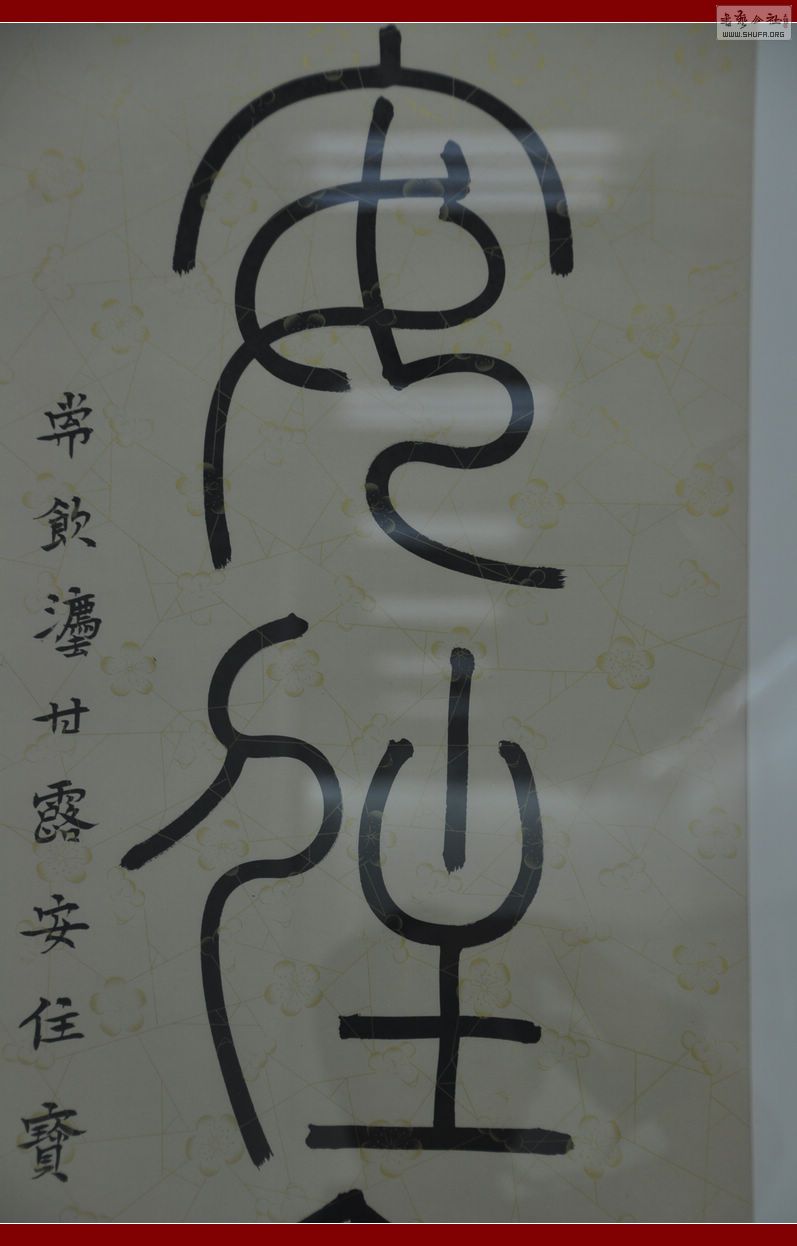 書藝公社
WWW.SHUFA.ORG
安住
常飲灋甘露安住寶